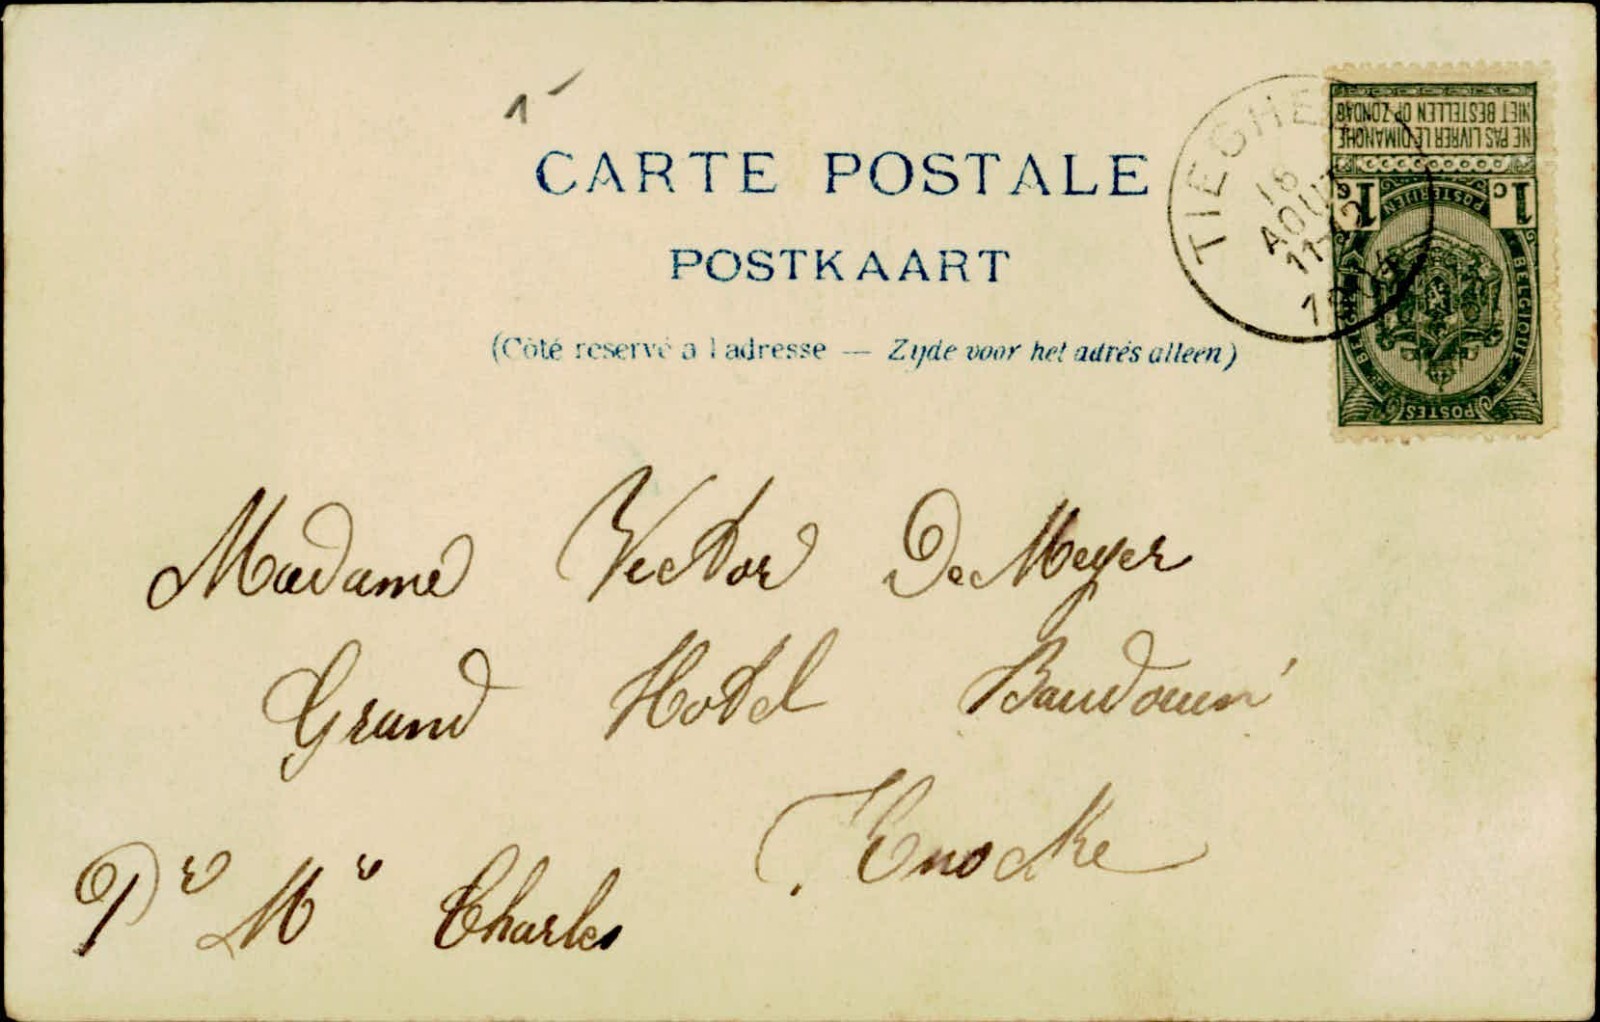 1
CARTE POSTALE
POSTKAART
(Côté reservé a l adresse — Zijde voor het adrés alleen)
TIEGHE
16
AOUT
11-12
NIET BESTELLEN OP ZONDAG
NE PAS LIVRER LE DIMANCHE
1c 1c
POSTERIJEN
BELGIQUE
POSTES
Madame Victor De Meyer
Grand Hotel Baudouin
Knocke
Pr Mr Charles